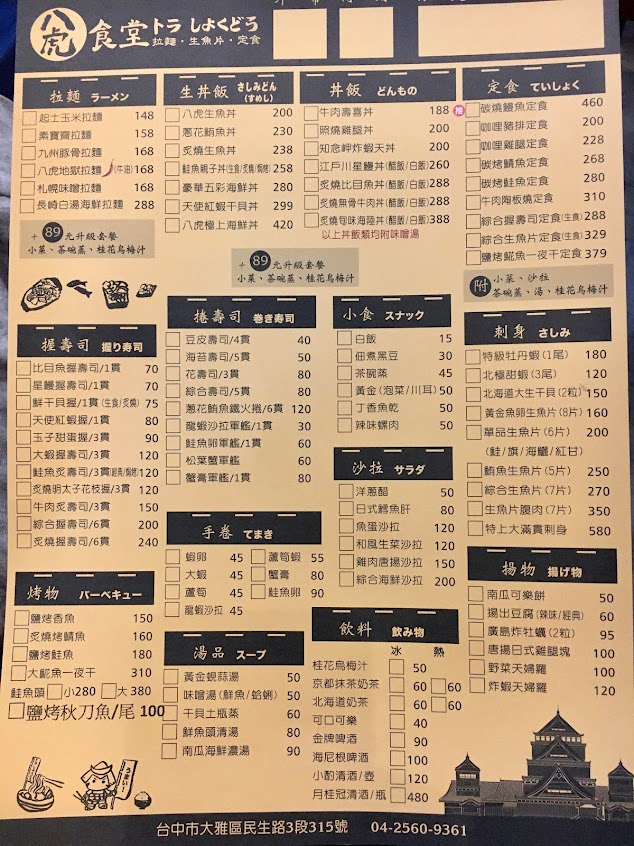 八虎
食堂トラ しょくどう
拉麵・生魚片・定食
拉麵 ラーメン
起士玉米拉麵 148
素寶齋拉麵 158
九州豚骨拉麵 168
八虎地獄拉麵 (牛油) 168
札幌味噌拉麵 168
長崎白湯海鮮拉麵 288
+89元升級套餐
小菜、茶碗蒸、桂花烏梅汁
生丼飯 さしみどん (すめし)
八虎生魚丼 200
蔥花鮪魚丼 230
炙燒生魚丼 238
鮭魚親子丼(生食/炙燒/焗烤) 258
豪華五彩海鮮丼 280
天使紅蝦干貝丼 299
八虎極上海鮮丼 420
丼飯 どんもの
牛肉壽喜丼 188
照燒雞腿丼 200
知念岬炸蝦天丼 200
江戶川星鰻丼(醋飯/白飯) 260
炙燒比目魚丼(醋飯/白飯) 288
炙燒無骨牛肉丼(醋飯/白飯) 288
炙燒旬味海陸丼(醋飯/白飯) 388
以上丼飯類均附味噌湯
+89元升級套餐
小菜、茶碗蒸、桂花烏梅汁
定食 ていしょく
推 碳燒鰻魚定食 460
咖哩豬排定食 200
咖哩雞腿定食 228
碳烤鯖魚定食 268
碳烤鮭魚定食 280
牛肉陶板燒定食 310
綜合握壽司定食(生食) 288
綜合生魚片定食(生食) 329
鹽烤魠魚一夜干定食 379
附 小菜、沙拉
茶碗蒸、湯、桂花烏梅汁
握壽司 握り寿司
比目魚握壽司/1貫 70
星鰻握壽司/1貫 70
鮮干貝握/1貫(生食/炙燒) 75
天使紅蝦握/1貫 80
玉子甜蛋握/3貫 90
大蝦握壽司/3貫 120
鮭魚炙壽司/3貫(經典/焗烤) 120
炙燒明太子花枝握/3貫 120
牛肉炙壽司/3貫 150
綜合握壽司/6貫 200
炙燒握壽司/6貫 240
捲壽司 巻き寿司
豆皮壽司/4貫 40
海苔壽司/5貫 50
花壽司/3貫 80
綜合壽司/5貫 80
蔥花鮪魚鐵火捲/6貫 120
龍蝦沙拉軍艦/1貫 30
鮭魚卵軍艦/1貫 60
松葉蟹軍艦 60
蟹膏軍艦/1貫 80
小食 スナック
白飯 15
佃煮黑豆 30
茶碗蒸 45
黃金(泡菜/川耳) 50
丁香魚乾 50
辣味螺肉 50
刺身 さしみ
特級牡丹蝦(1尾) 180
北極甜蝦(3尾) 120
北海道大生干貝(2粒) 150
黃金魚卵生魚片(8片) 160
單品生魚片(6片) 200
(鮭/旗/海鱺/紅甘)
鮪魚生魚片(5片) 250
綜合生魚片(7片) 270
生魚片腹肉(7片) 350
特上大滿貫刺身 580
沙拉 サラダ
洋蔥醋 50
日式鱈魚肝 80
魚蛋沙拉 120
和風生菜沙拉 120
雞肉唐揚沙拉 150
綜合海鮮沙拉 200
手卷 てまき
蝦卵 45 蘆筍蝦 55
大蝦 45 蟹膏 80
蘆筍 45 鮭魚卵 90
龍蝦沙拉 45
揚物 揚げ物
南瓜可樂餅 50
揚出豆腐(辣味/經典) 60
廣島炸牡蠣(2粒) 95
唐揚日式雞腿塊 100
野菜天婦羅 100
炸蝦天婦羅 120
烤物 バーベキュー
鹽烤香魚 150
炙燒烤鯖魚 160
鹽烤鮭魚 180
大魠魚一夜干 310
鮭魚頭 小280 大380
鹽烤秋刀魚/尾 100
湯品 スープ
黃金蜆蒜湯 50
味噌湯(鮮魚/蛤蜊) 50
干貝土瓶蒸 60
鮮魚頭清湯 80
南瓜海鮮濃湯 90
飲料 飲み物
冰 熱
桂花烏梅汁 50
京都抹茶奶茶 60 60
北海道奶茶 60 60
可口可樂 40
金牌啤酒 90
海尼根啤酒 100
小酌清酒/壺 120
月桂冠清酒/瓶 480
台中市大雅區民生路3段315號 04-2560-9361